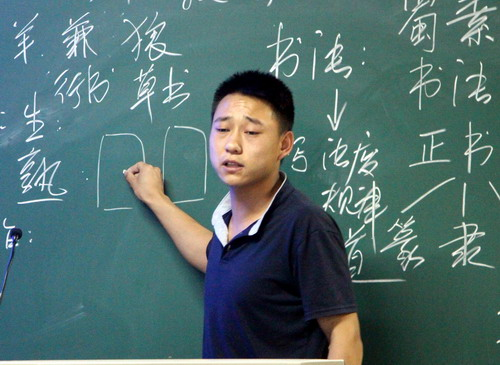 羊 兼 狼
行书 草书
生：
熟：
书法：
法度
规律
蜀素
书法
正书
篆 隶